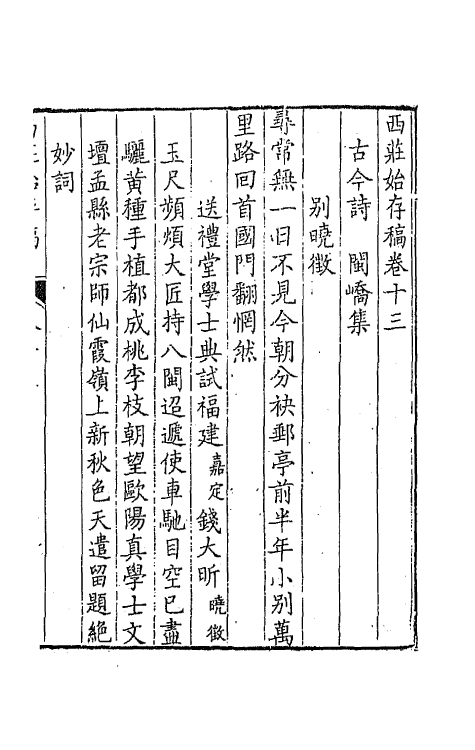 西莊始存稿卷十三
古今詩　閩嶠集
別曉徵
尋常無一日不見今朝分袂郵亭前半年小別萬
里路回首國門翻惘然
送禮堂學士典試福建 嘉定 錢大昕 曉徵
玉尺頻煩大匠持八閩迢遞使車馳目空已盡
驪黄種手植都成桃李枝朝望歐陽真學士文
壇孟縣老宗師仙霞嶺上新秋色天遣留題絕
妙詞